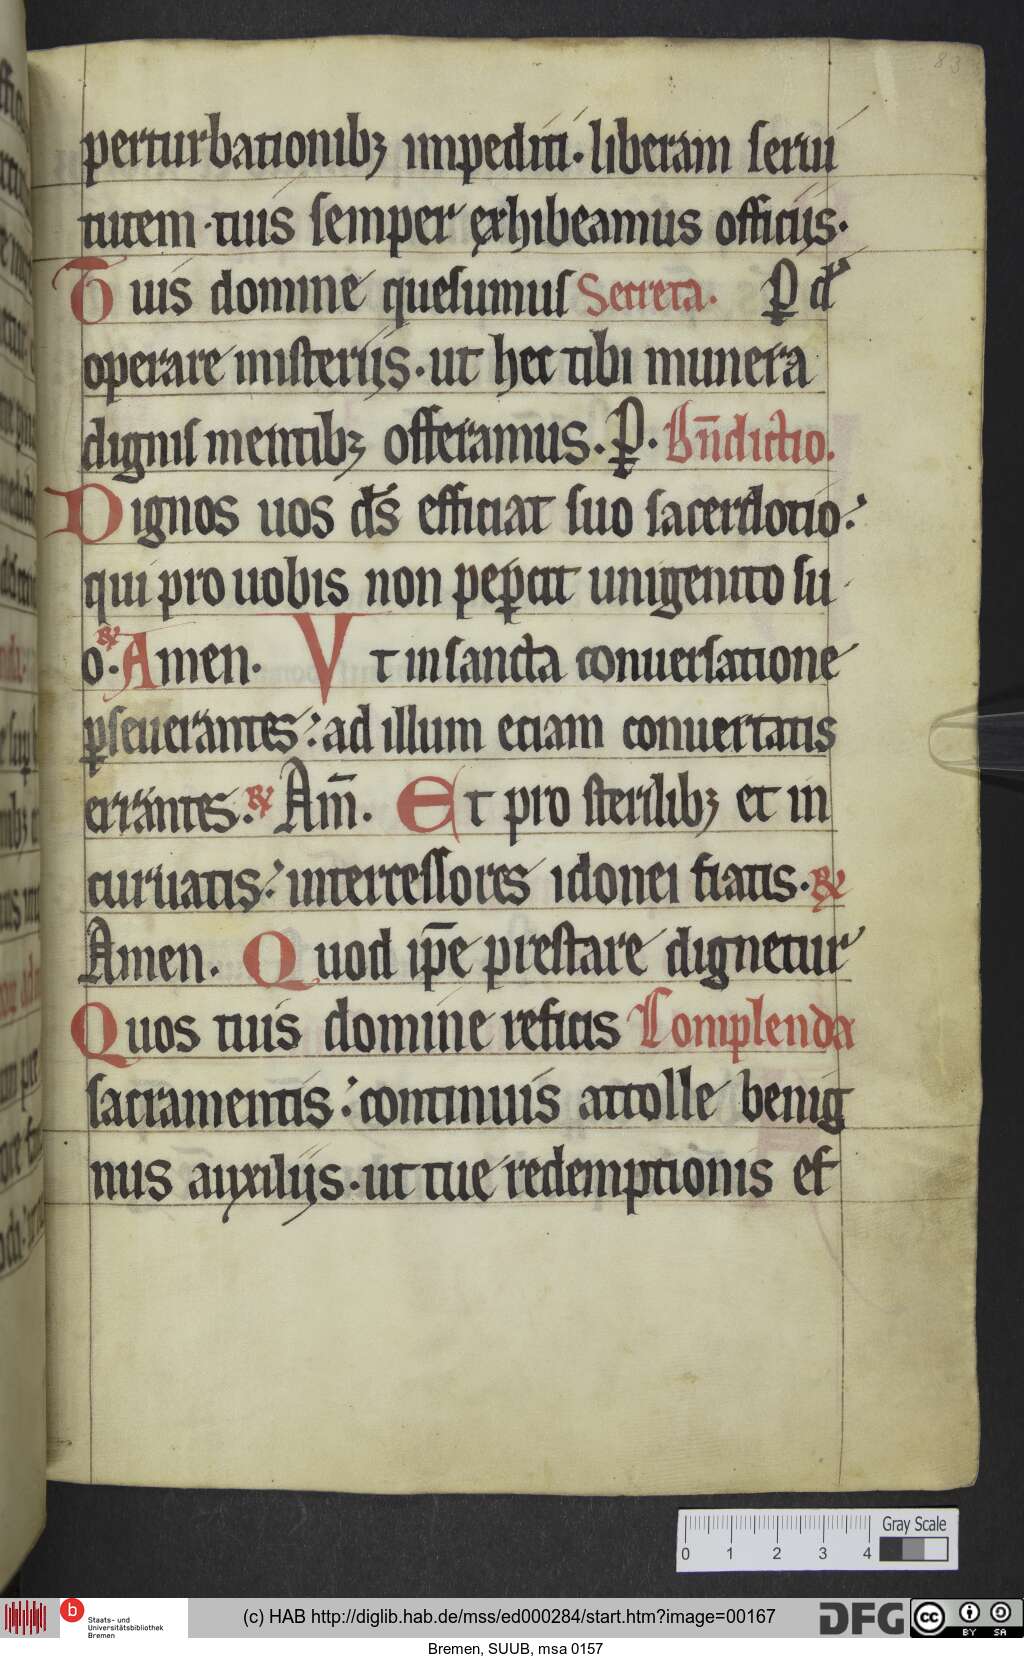 83
perturbationibꝫ impediti. liberam serui
tutem. tuis semper exhibeamus officijs.
Tuis domine quesumus Secreta. P d̄
operare misterijs. ut hec tibi munera
dignis mentibꝫ offeramus. P. Bn̄dictio.
Dignos uos d̄s efficiat suo sacerdotio:
qui pro uobis non peꝑcit unigenito su
o. ℞ Amen. Vt in sancta conuersatione
ꝑseuerantes: ad illum eciam conuertatis
errantes. ℞ Am̄. Et pro sterilibꝫ et in
curuatis: intercessores idonei fiatis. ℞
Amen. Quod ip̄e prestare dignetur
Quos tuis domine reficis Complenda
sacramentis: continuis attolle benig
nus auxilijs. ut tue redemptionis ef
Gray Scale
0 1 2 3 4
b Staats- und
Universitätsbibliothek
Bremen
(c) HAB http://diglib.hab.de/mss/ed000284/start.htm?image=00167
DFG
cc BY SA
Bremen, SUUB, msa 0157